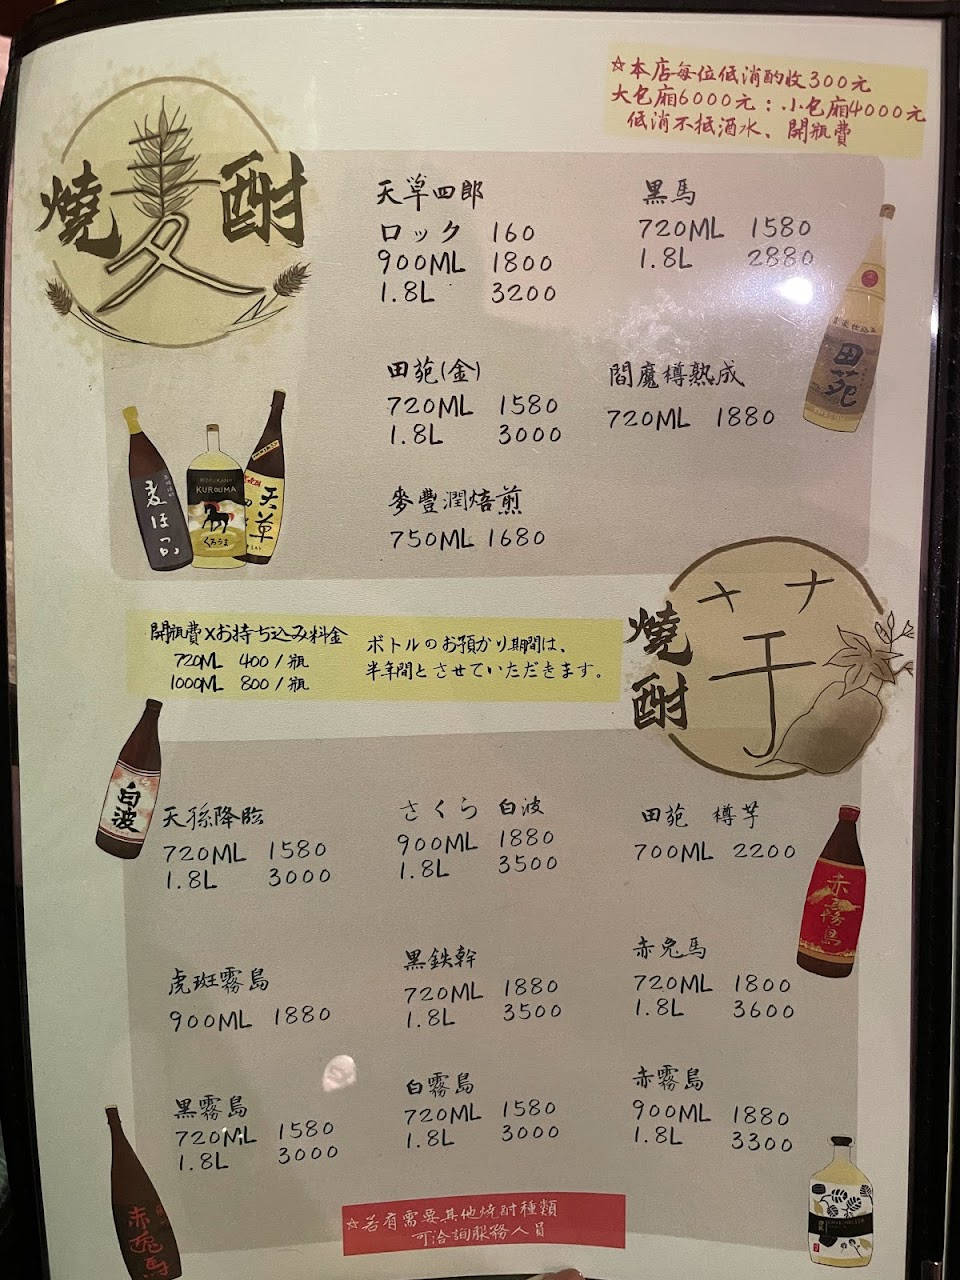 ☆本店每位低消酌收300元
大包廂6000元；小包廂4000元
低消不抵酒水、開瓶費
麥
燒酎
天草四郎
ロック 160
900ML 1800
1.8L 3200
黑馬
720ML 1580
1.8L 2880
田苑(金)
720ML 1580
1.8L 3000
閻魔樽熟成
720ML 1880
麥豐潤焙煎
750ML 1680
田苑
麦ほ
KUROUMA
くろうま
天草
開瓶費xお持ち込み料金
720ML 400/瓶
1000ML 800/瓶
ボトルのお預かり期間は、
半年間とさせていただきます。
サナ
芋
燒酎
白波
天孫降臨
720ML 1580
1.8L 3000
さくら 白波
900ML 1880
1.8L 3500
田苑 樽芋
700ML 2200
赤霧島
虎斑霧島
900ML 1880
黑鉄幹
720ML 1880
1.8L 3500
赤兔馬
720ML 1800
1.8L 3600
黑霧島
720ML 1580
1.8L 3000
白霧島
720ML 1580
1.8L 3000
赤霧島
900ML 1880
1.8L 3300
赤兔馬
☆若有需要其他燒酎種類
可洽詢服務人員